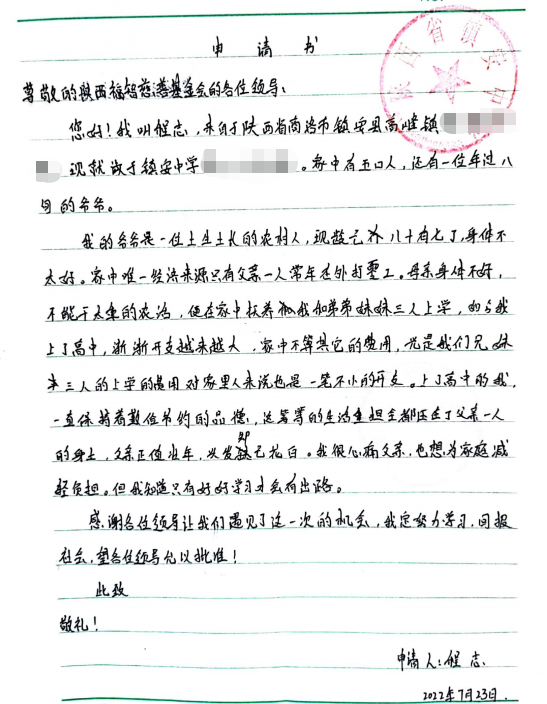 申请书
尊敬的陕西福智慈善基金会的各位领导:
您好!我叫程志,来自于陕西省商洛市镇安县高峰镇
现就读于镇安中学 。家中有五口人,还有一位年过八
旬的爷爷。
我的爷爷是一位土生土长的农村人,现龄已八十有七了,身体不
太好。家中唯一经济来源只有父亲一人常年在外打零工。母亲身体不好,
不能干太重的农活,便在家中扶养我和弟弟妹妹三人上学,如今我
上了高中,渐渐开支越来越大,家中不算其它的费用,光是我们兄妹
三人的上学的费用对家里人来说也是一笔不小的开支。上了高中的我,
一直保持着勤俭节约的品德,这笔笔的生活重担全都压在了父亲一人
的身上,父亲正值壮年,以发却已花白。我很心痛父亲,也想为家庭减
轻负担。但我知道只有好好学习才会有出路。
感谢各位领导让我们遇见了这一次的机会,我定努力学习,回报
社会,望各位领导允以批准!
此致
敬礼!
申请人:程志
2022年7月23日.
陕西省镇安